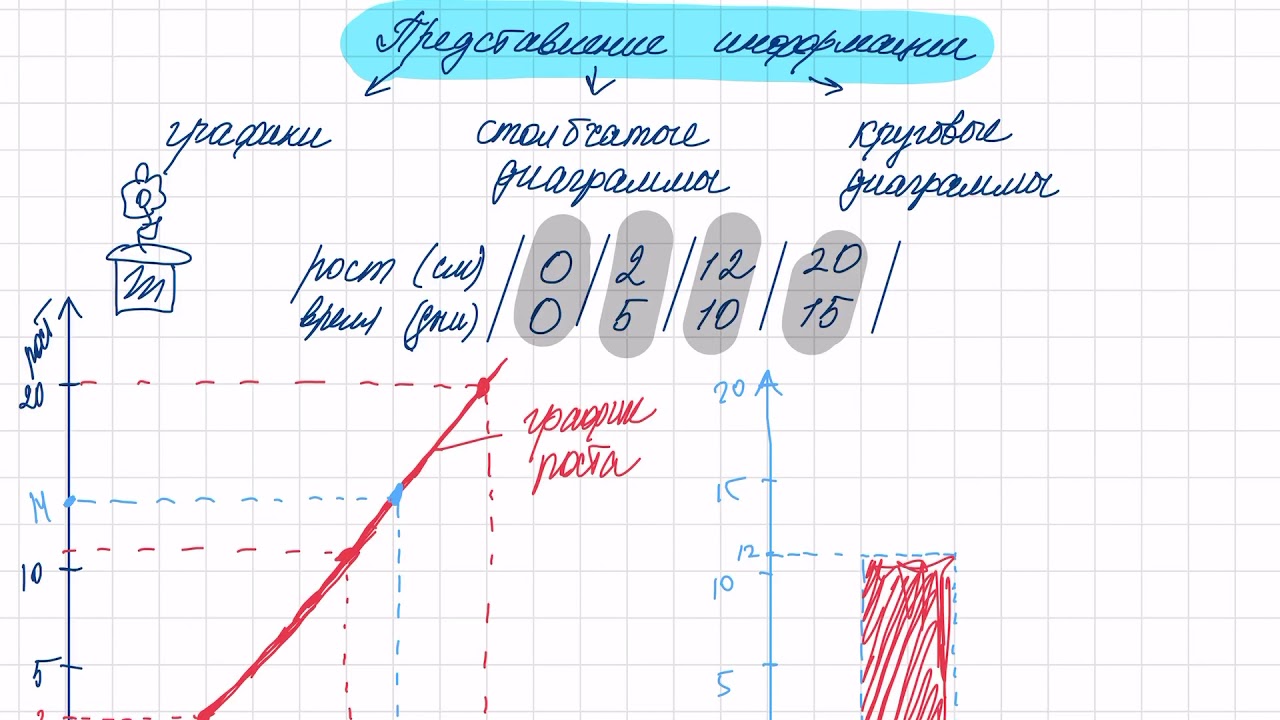 Представление информации
графики
столбчатые
диаграммы
круговые
диаграммы
рост (см) 0 2 12 20
время (дни) 0 5 10 15
рост
20
14
10
5
2
график
роста
20
15
12
10
5